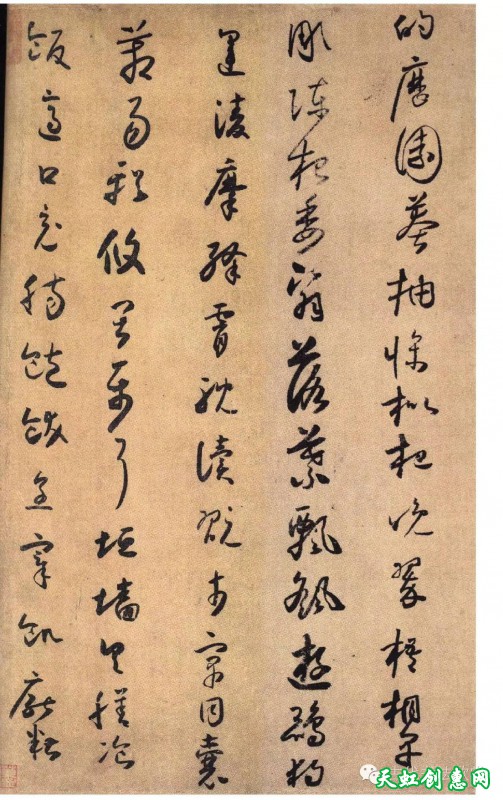 的歷園莽抽條枇杷晚翠梧桐早
凋陳根委翳落葉飄颻遊鵾獨
運凌摩絳霄耽讀翫市寓目囊
箱易輶攸畏屬耳垣墻具膳飡
飯適口充腸飽飫烹宰飢厭糟
天虹创意网